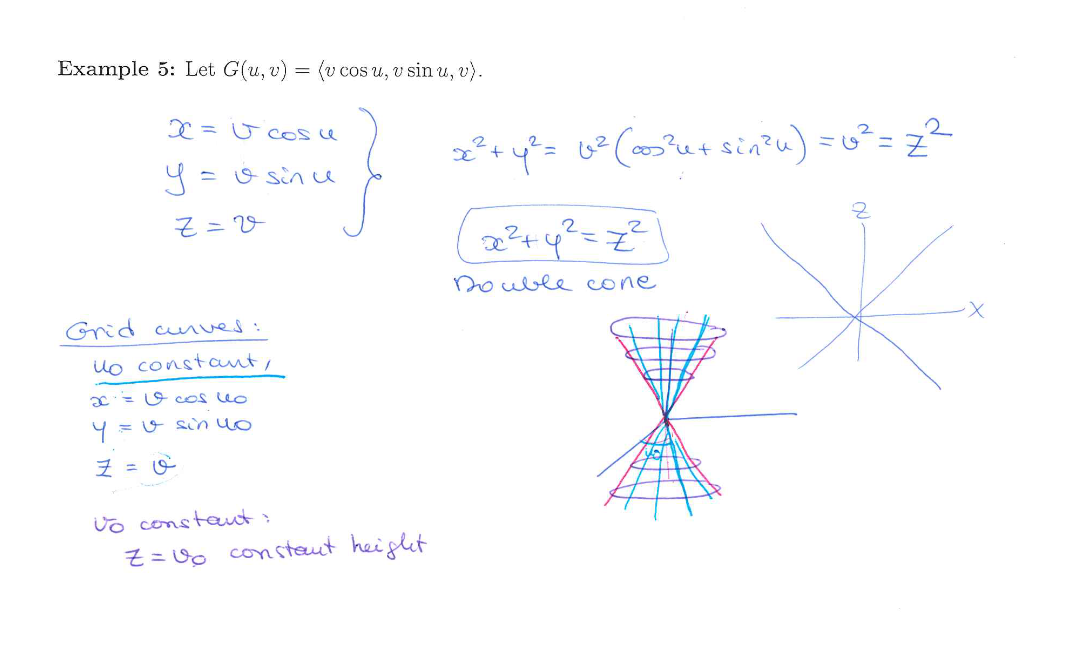 Example 5: Let G(u, v) = ⟨v cos u, v sin u, v⟩.
x = v cos u
y = v sin u
z = v
x² + y² = v² (cos²u + sin²u) = v² = z²
x² + y² = z²
Double cone
z
x
Grid curves:
u₀ constant,
x = v cos u₀
y = v sin u₀
z = v
u₀
v₀ constant:
z = v₀ constant height